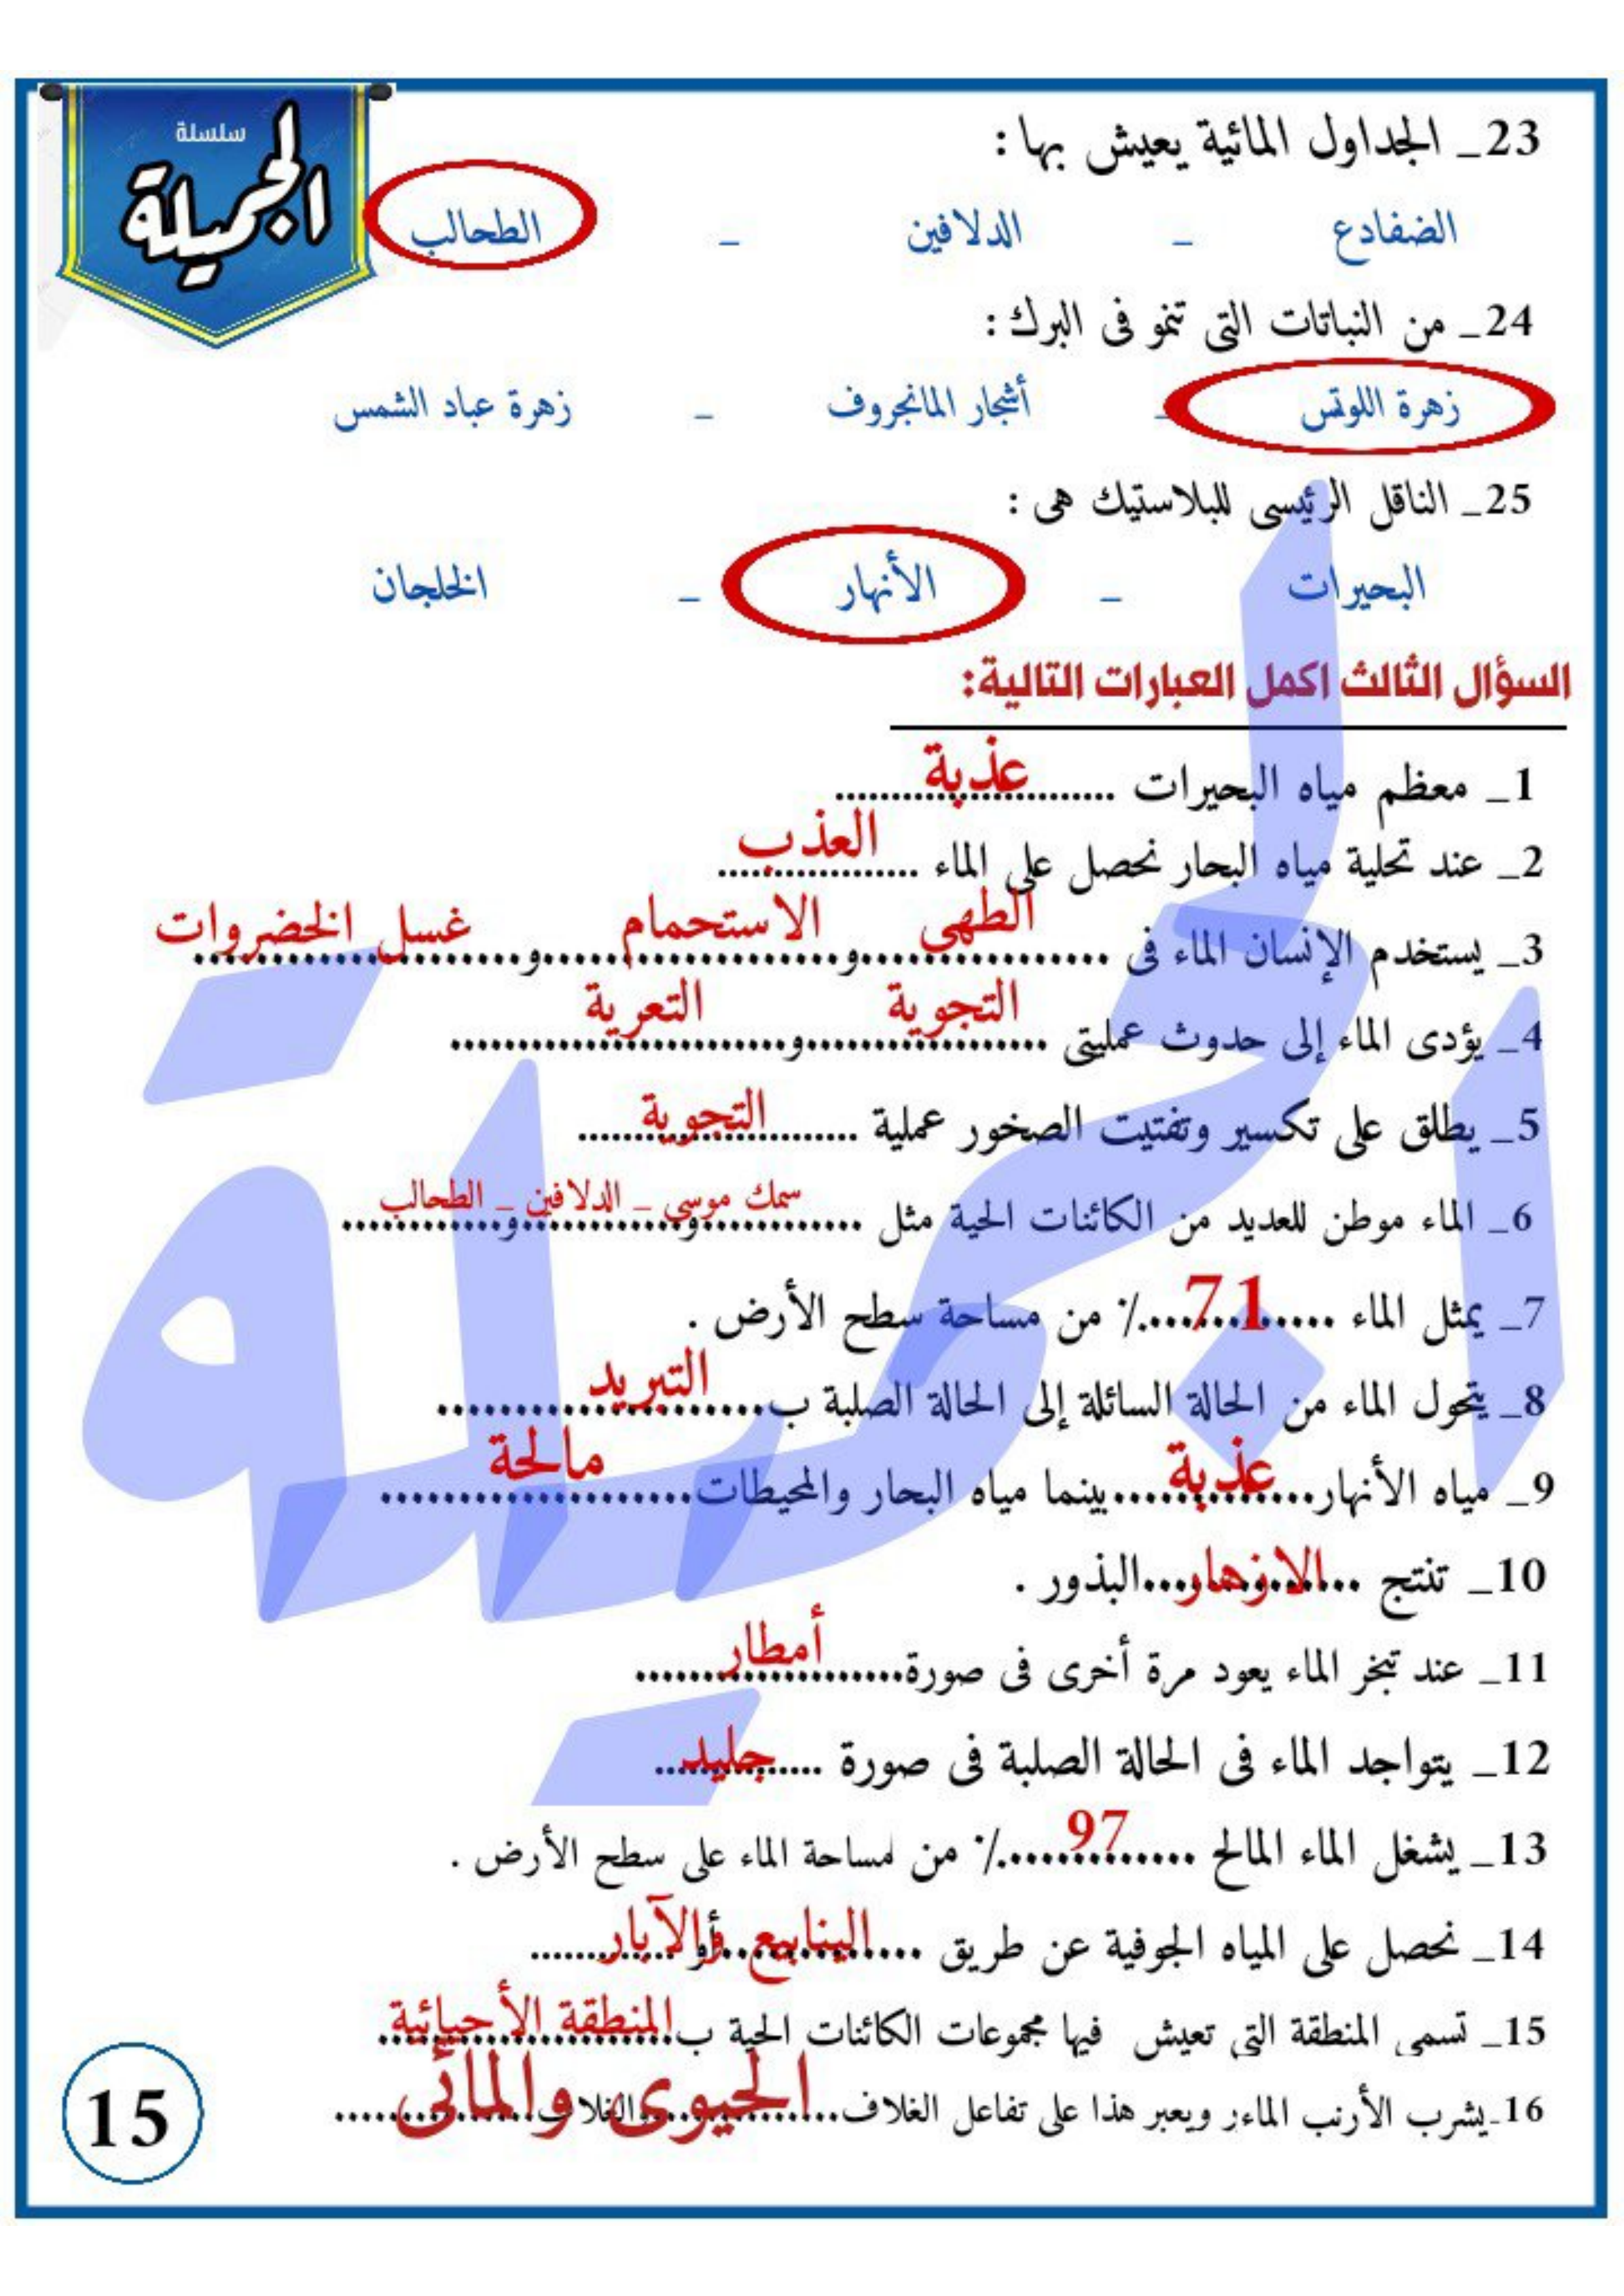 سلسلة
الجميلة
23_ الجداول المائية يعيش بها :
الضفادع _ الدلافين _ الطحالب
24_ من النباتات التى تنمو فى البرك :
زهرة اللوتس _ أشجار المانجروف _ زهرة عباد الشمس
25_ الناقل الرئيسى للبلاستيك هى :
البحيرات _ الأنهار _ الخلجان
السؤال الثالث اكمل العبارات التالية:
1_ معظم مياه البحيرات ........ عذبة ........
2_ عند تحلية مياه البحار نحصل على الماء ........ العذب ........
3_ يستخدم الإنسان الماء فى ........ الطهى ........و........ الاستحمام ........و........ غسل الخضروات ........
4_ يؤدى الماء إلى حدوث عمليتى ........ التجوية ........و........ التعرية ........
5_ يطلق على تكسير وتفتيت الصخور عملية ........ التجوية ........
6_ الماء موطن للعديد من الكائنات الحية مثل ........ سمك موسى _ و الدلافين _ و الطحالب ........
7_ يمثل الماء ....71....٪ من مساحة سطح الأرض .
8_ يتحول الماء من الحالة السائلة إلى الحالة الصلبة ب........ التبريد ........
9_ مياه الأنهار........ عذبة ........بينما مياه البحار والمحيطات........ مالحة ........
10_ تنتج ....الازهار....البذور .
11_ عند تبخر الماء يعود مرة أخرى فى صورة........ أمطار ........
12_ يتواجد الماء فى الحالة الصلبة فى صورة ....جليد....
13_ يشغل الماء المالح ....97....٪ من مساحة الماء على سطح الأرض .
14_ نحصل على المياه الجوفية عن طريق ....الينابيع....أو والآبار....
15_ تسمى المنطقة التى تعيش فيها مجموعات الكائنات الحية ب....المنطقة الأحيائية....
16_يشرب الأرنب الماءر ويعبر هذا على تفاعل الغلاف....الحيوى....والغلاف....والمائى....
15
الجميلة